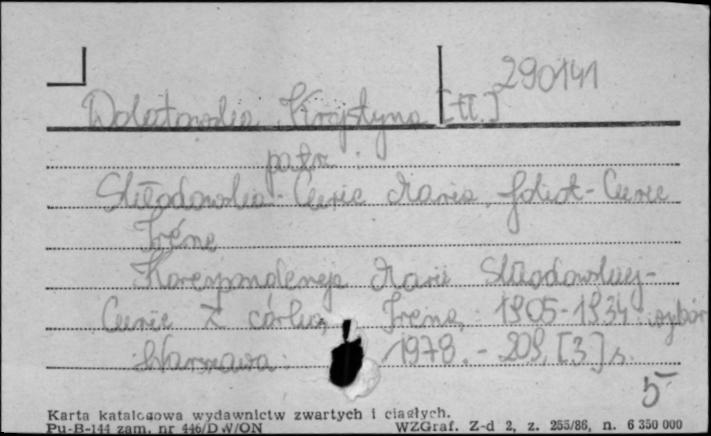 290141
Wolatowska, Krystyna [tł.]
patrz
Skłodowska-Curie Maria, Joliot-Curie
Irene
Korespondencja Marii Skłodowskiej-
Curie z córką Ireną : 1905-1934 : wybór
Warszawa : 1978. - 209, [3] s.
5
Karta katalogowa wydawnictw zwartych i ciągłych.
Pu-B-144 zam. nr 446/DW/ON WZGraf. Z-d 2, z. 255/86, n. 6 350 000